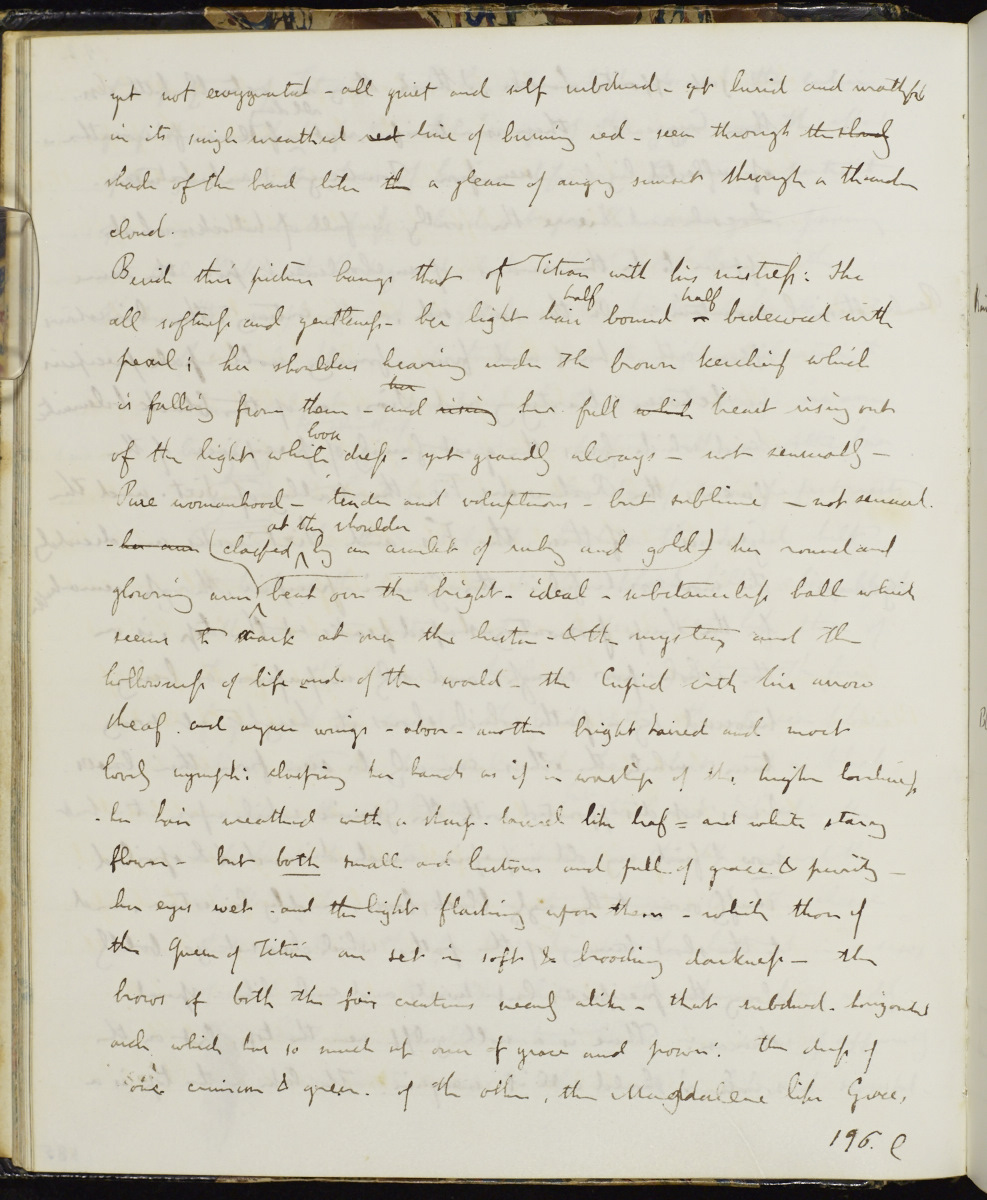 yet not exaggerated - all quiet and self subdued - yet lurid and wrathful
in its single wreathed red line of burning red - seen through the cloudy
shade of the hand like the a gleam of angry sunset through a thunder
cloud.
Beside this picture hangs that of Titian with his mistress: She
half half
all softness and gentleness - her light hair bound or bedewed with
pearl; her shoulders heaving under the brown kerchief which
her
is falling from them - and rising her full white breast rising out
loose
of the light white dress - yet grandly always - not sensually -
Pure womanhood - tender and voluptuous - but sublime - not sensual.
at the shoulder
- her arm (clasped by an armlet of ruby and gold) her round and
glowing arm bent over the bright - ideal - substanceless ball which
seems to mark at once the lustre - & the mystery and the
hollowness of life and of the world - the Cupid with his arrow
sheaf and azure wings - above - another bright haired and most
lovely nymph: clasping her hands as if in worship of the higher loveliness
- her hair wreathed with a sharp laurel like leaf = and white starry
flower - but both small and lustrous and full of grace & purity -
her eyes wet - and the light flashing upon them - while those of
the Queen of Titian are set in soft & brooding darkness - the
brows of both the fair creatures nearly alike - that subdued - horizontal
arch which has so much at once of grace and power: the dress of
one crimson & green. of the other, the Magdalene like Grace,
196. C